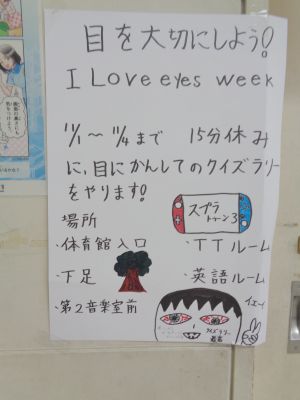 目を大切にしよう!
I Love eyes week
11/1〜11/4まで 15分休み
に、目にかんしてのクイズラリー
をやります!
場所
スプラ
トゥーン3
・体育館入口
・TTルーム
・下足
・英語ルーム
・第2音楽室前
イエーイ
クイズラリー